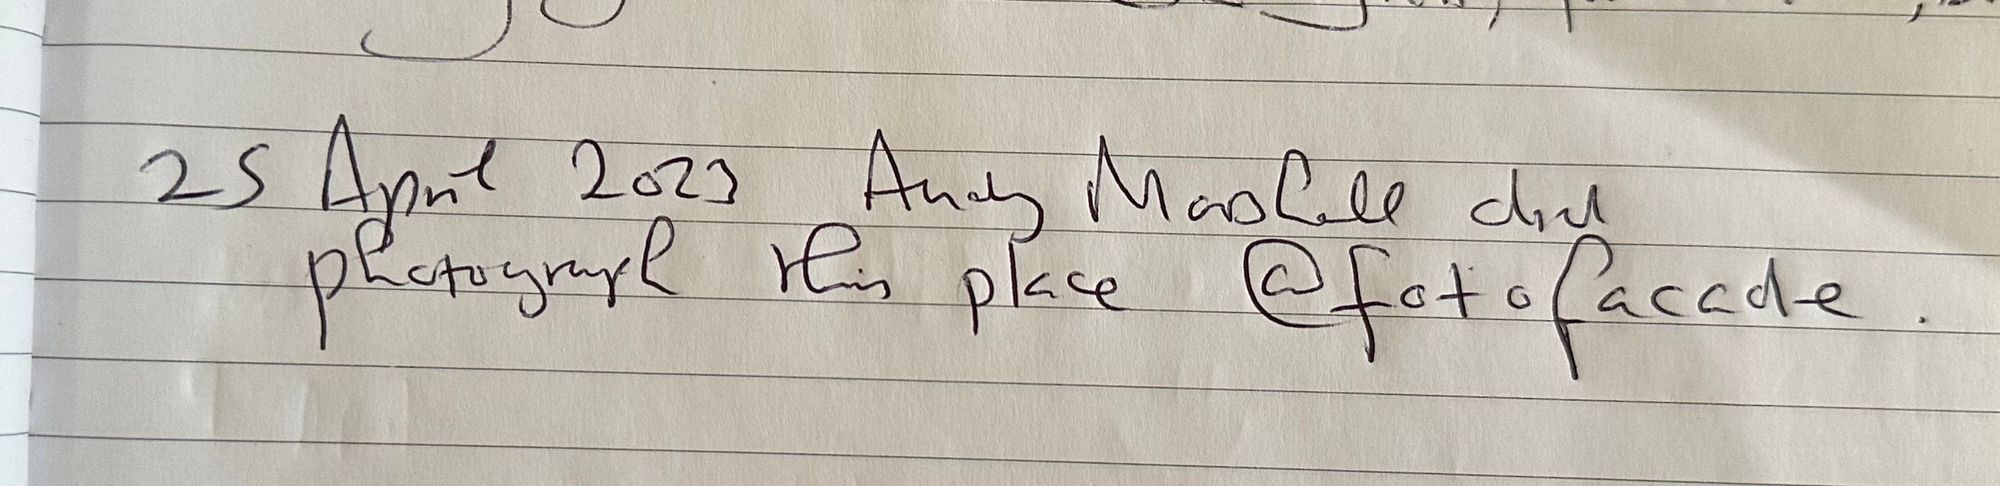 25 April 2023 Andy Marshall did
photograph this place @fotofacade.